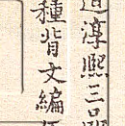 淳熙三
種背文編